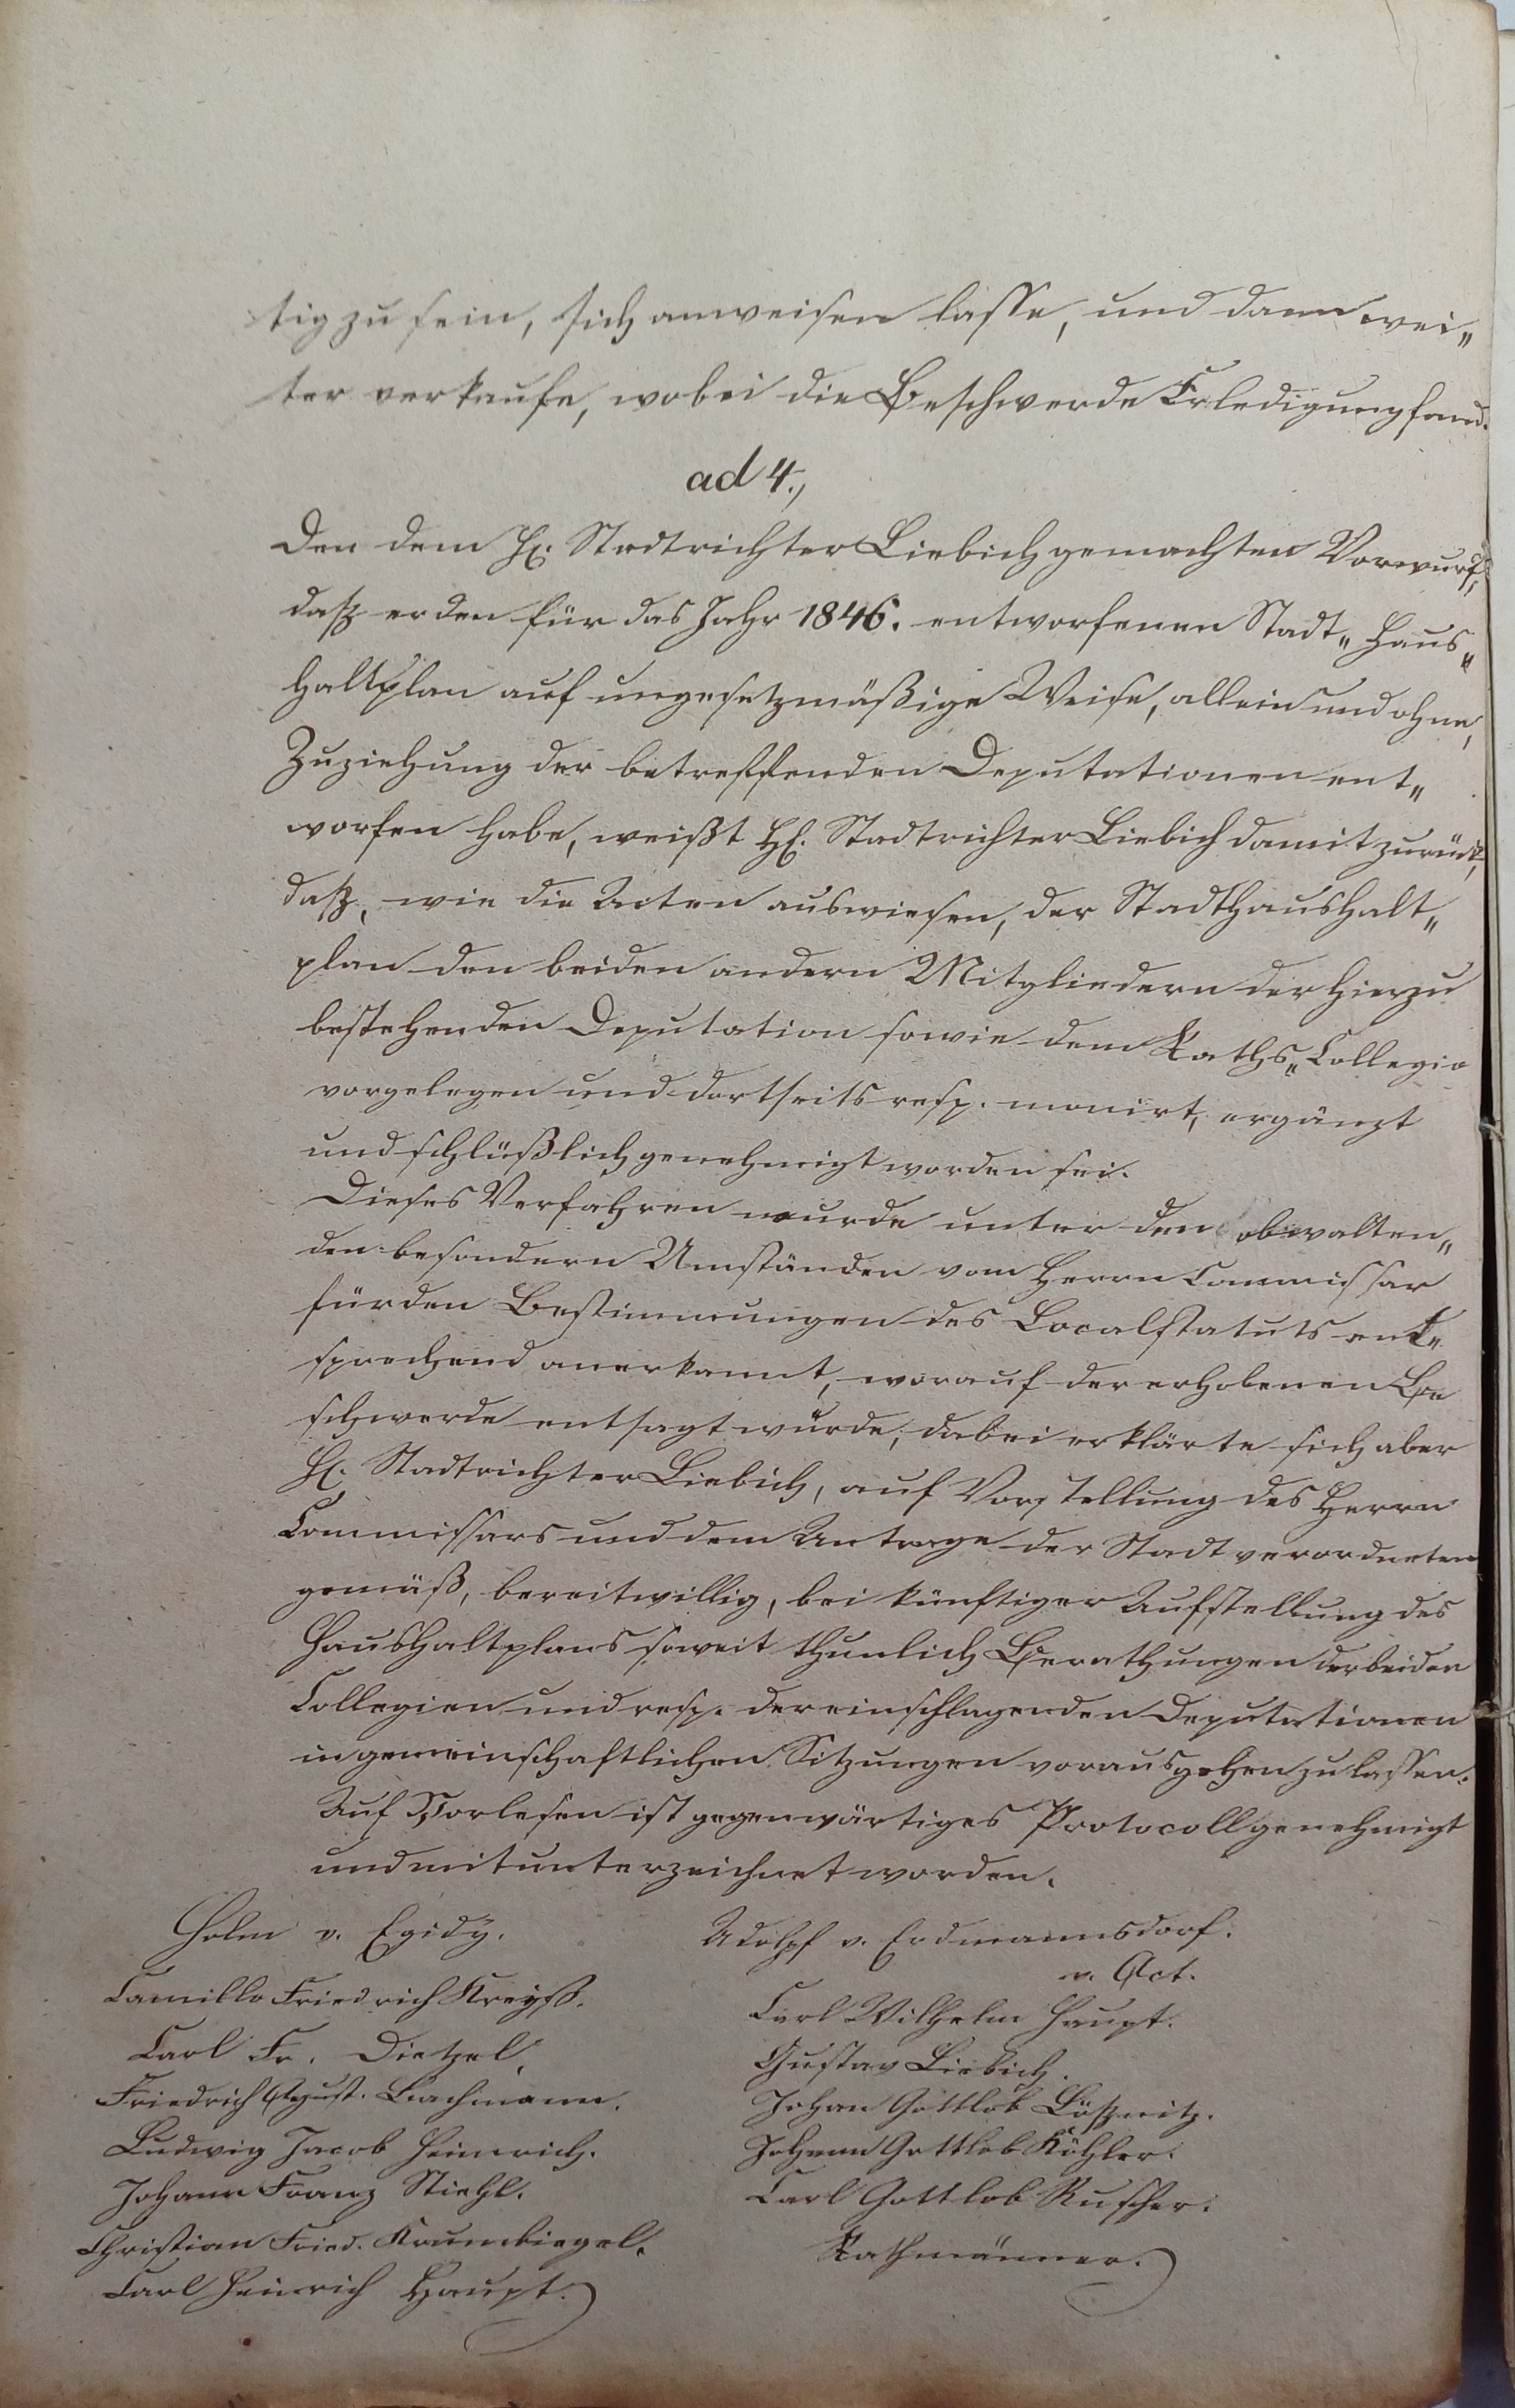 tig zu sein, sich anweisen lasse, und dann wei„
ter verkaufe, wobei die Beschwerde Erledigung fand.
ad 4.,
Den dem H. Stadtrichter Liebich gemachten Vorwurf,
daß er den für das Jahr 1846. entworfenen Stadt„Haus„
haltplan auf ungesetzmäßige Weise, allein und ohne,
Zuziehung der betreffenden Deputationen ent„
worfen habe, weißt H. Stadtrichter Liebich damit zurück,
daß, wie die Acten auswiesen, der Stadthaushalt„
plan den beiden andern Mitgliedern der hierzu
bestehenden Deputation sowie dem Raths„Collegio
vorgelegen und dortseits resp. monirt, ergänzt
und schlüßlich genehmigt worden sei.
Dieses Verfahren wurde unter den obwalten„
den besondern Umständen vom Herrn Commissar
für den Bestimmungen des Localstatuts ent„
sprechend anerkannt, worauf der erhobenen Be
schwerde entsagt wurde; dabei erklärte sich aber
H. Stadtrichter Liebich, auf Vorstellung des Herrn
Commissars und dem Antrage der Stadtverordneten
gemäß, bereitwillig, bei künftiger Aufstellung des
Haushaltplans soweit thunlich Berathungen der beiden
Collegien und resp. der einschlagenden Deputationen
in gemeinschaftlichen Sitzungen vorausgehen zu lassen.
Auf Vorlesen ist gegenwärtiges Protocoll genehmigt
und mitunterzeichnet worden.
Holm v. Egidy.
Camillo Friedrich Kreyß.
Carl Fr. Dietzel.
Friedrich August. Bachmann.
Ludwig Jacob Heinrich.
Johann Franz Stiehl.
Christian Fried. Krumbiegel.
Carl Heinrich Haupt.
Adolph v. Erdmannsdorf.
v. Act.
Carl Wilhelm Haupt.
Gustav Liebich.
Johan Gottlob Lößnitz.
Johann Gottlob Köhler.
Carl Gottlob Ruscher.
Rathmänner.